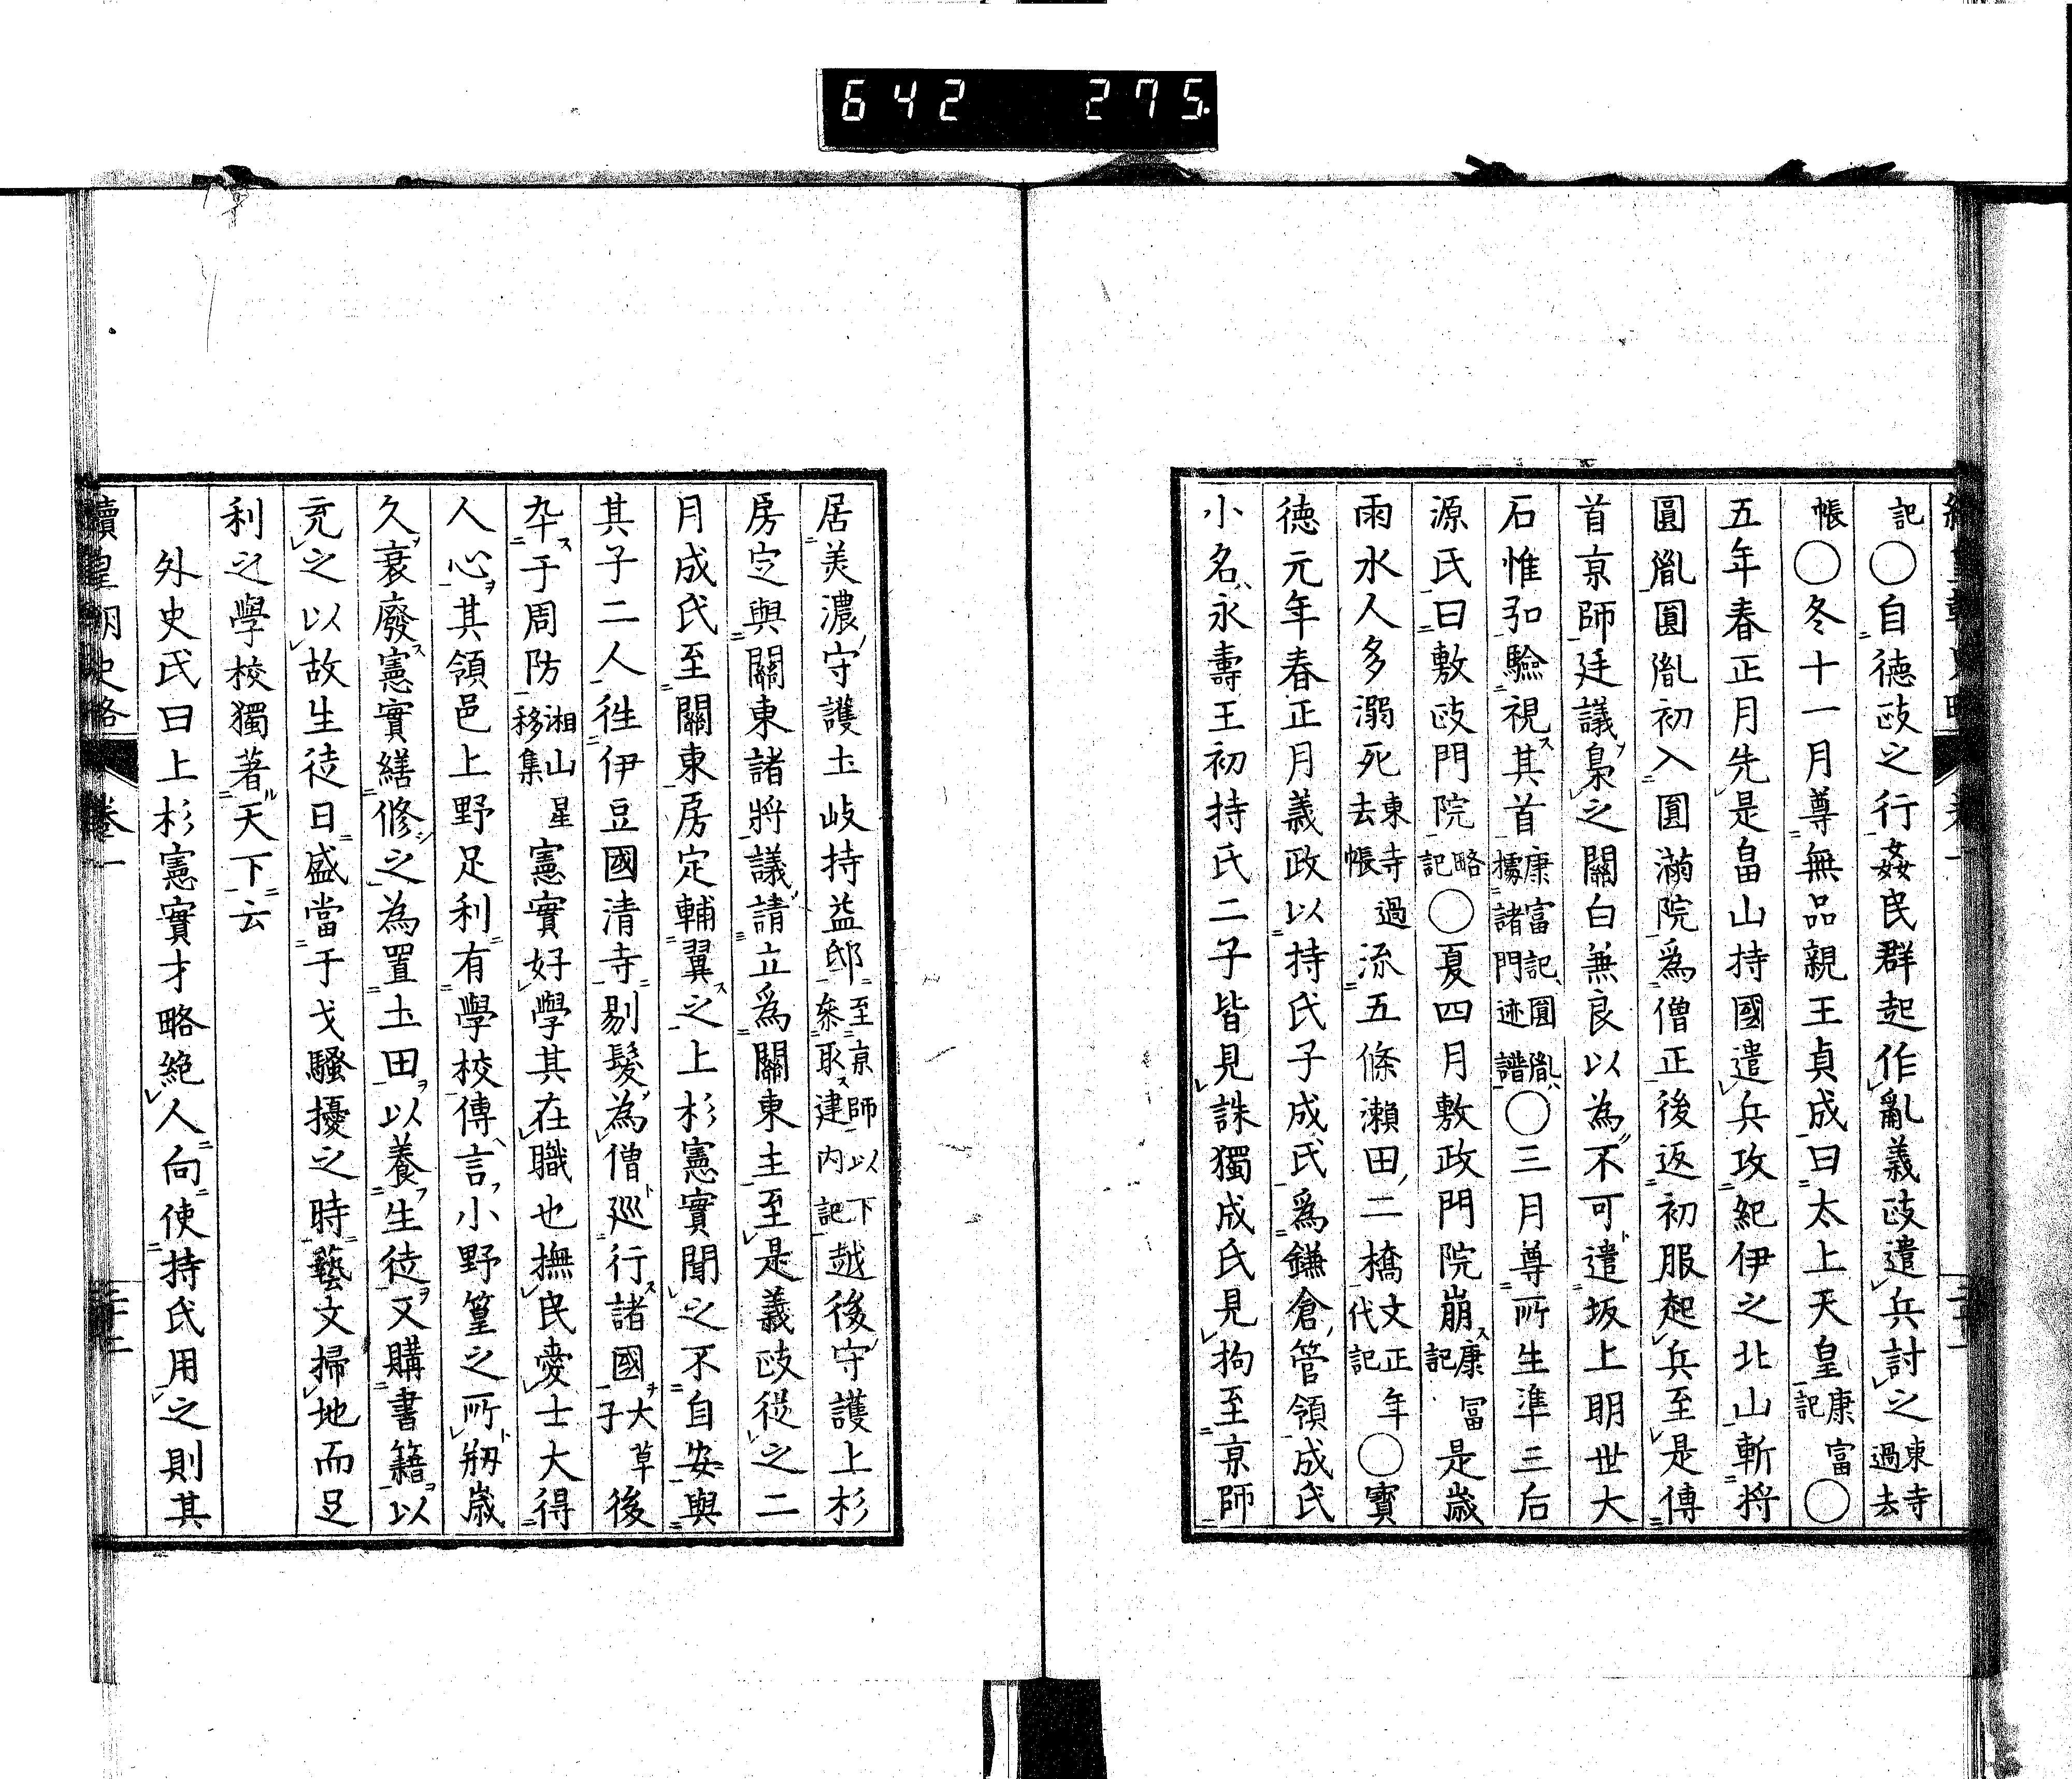 642 275
記〇自德政之行姦民群起作亂義政遣兵討之東寺過去
帳〇冬十一月尊無品親王貞成曰太上天皇康富記〇
五年春正月先是畠山持國遣兵攻紀伊之北山斬將
圓胤圓胤初入圓滿院爲僧正後返初服起兵至是傳
首京師廷議梟之關白兼良以為不可遣坂上明世大
石惟弘驗視其首康富記、圓胤、據諸門迹譜〇三月尊所生準三后
源氏曰敷政門院略記〇夏四月敷政門院崩康富記是歳
雨水人多溺死東寺過去帳流五條瀬田二橋文正年代記〇寳
徳元年春正月義政以持氏子成氏爲鎌倉管領成氏
小名永壽王初持氏二子皆見誅獨成氏見拘至京師
居美濃守護土岐持益邸至京師以下叅取建内記越後守護上杉
房定與關東諸將議請立爲關東主至是義政從之二
月成氏至關東房定輔翼之上杉憲實聞之不自安與
其子二人徃伊豆國清寺剔髮為僧巡行諸國大草子後
卒于周防湘山星移集憲實好學其在職也撫民愛士大得
人心其領邑上野足利有學校傳言小野篁之所剏歳
久衰廢憲實繕修之為置土田以養生徒又購書籍以
充之以故生徒日盛當干戈騷擾之時藝文掃地而足
利之學校獨著天下云
外史氏曰上杉憲實才略絶人向使持氏用之則其
續皇朝史略 卷一